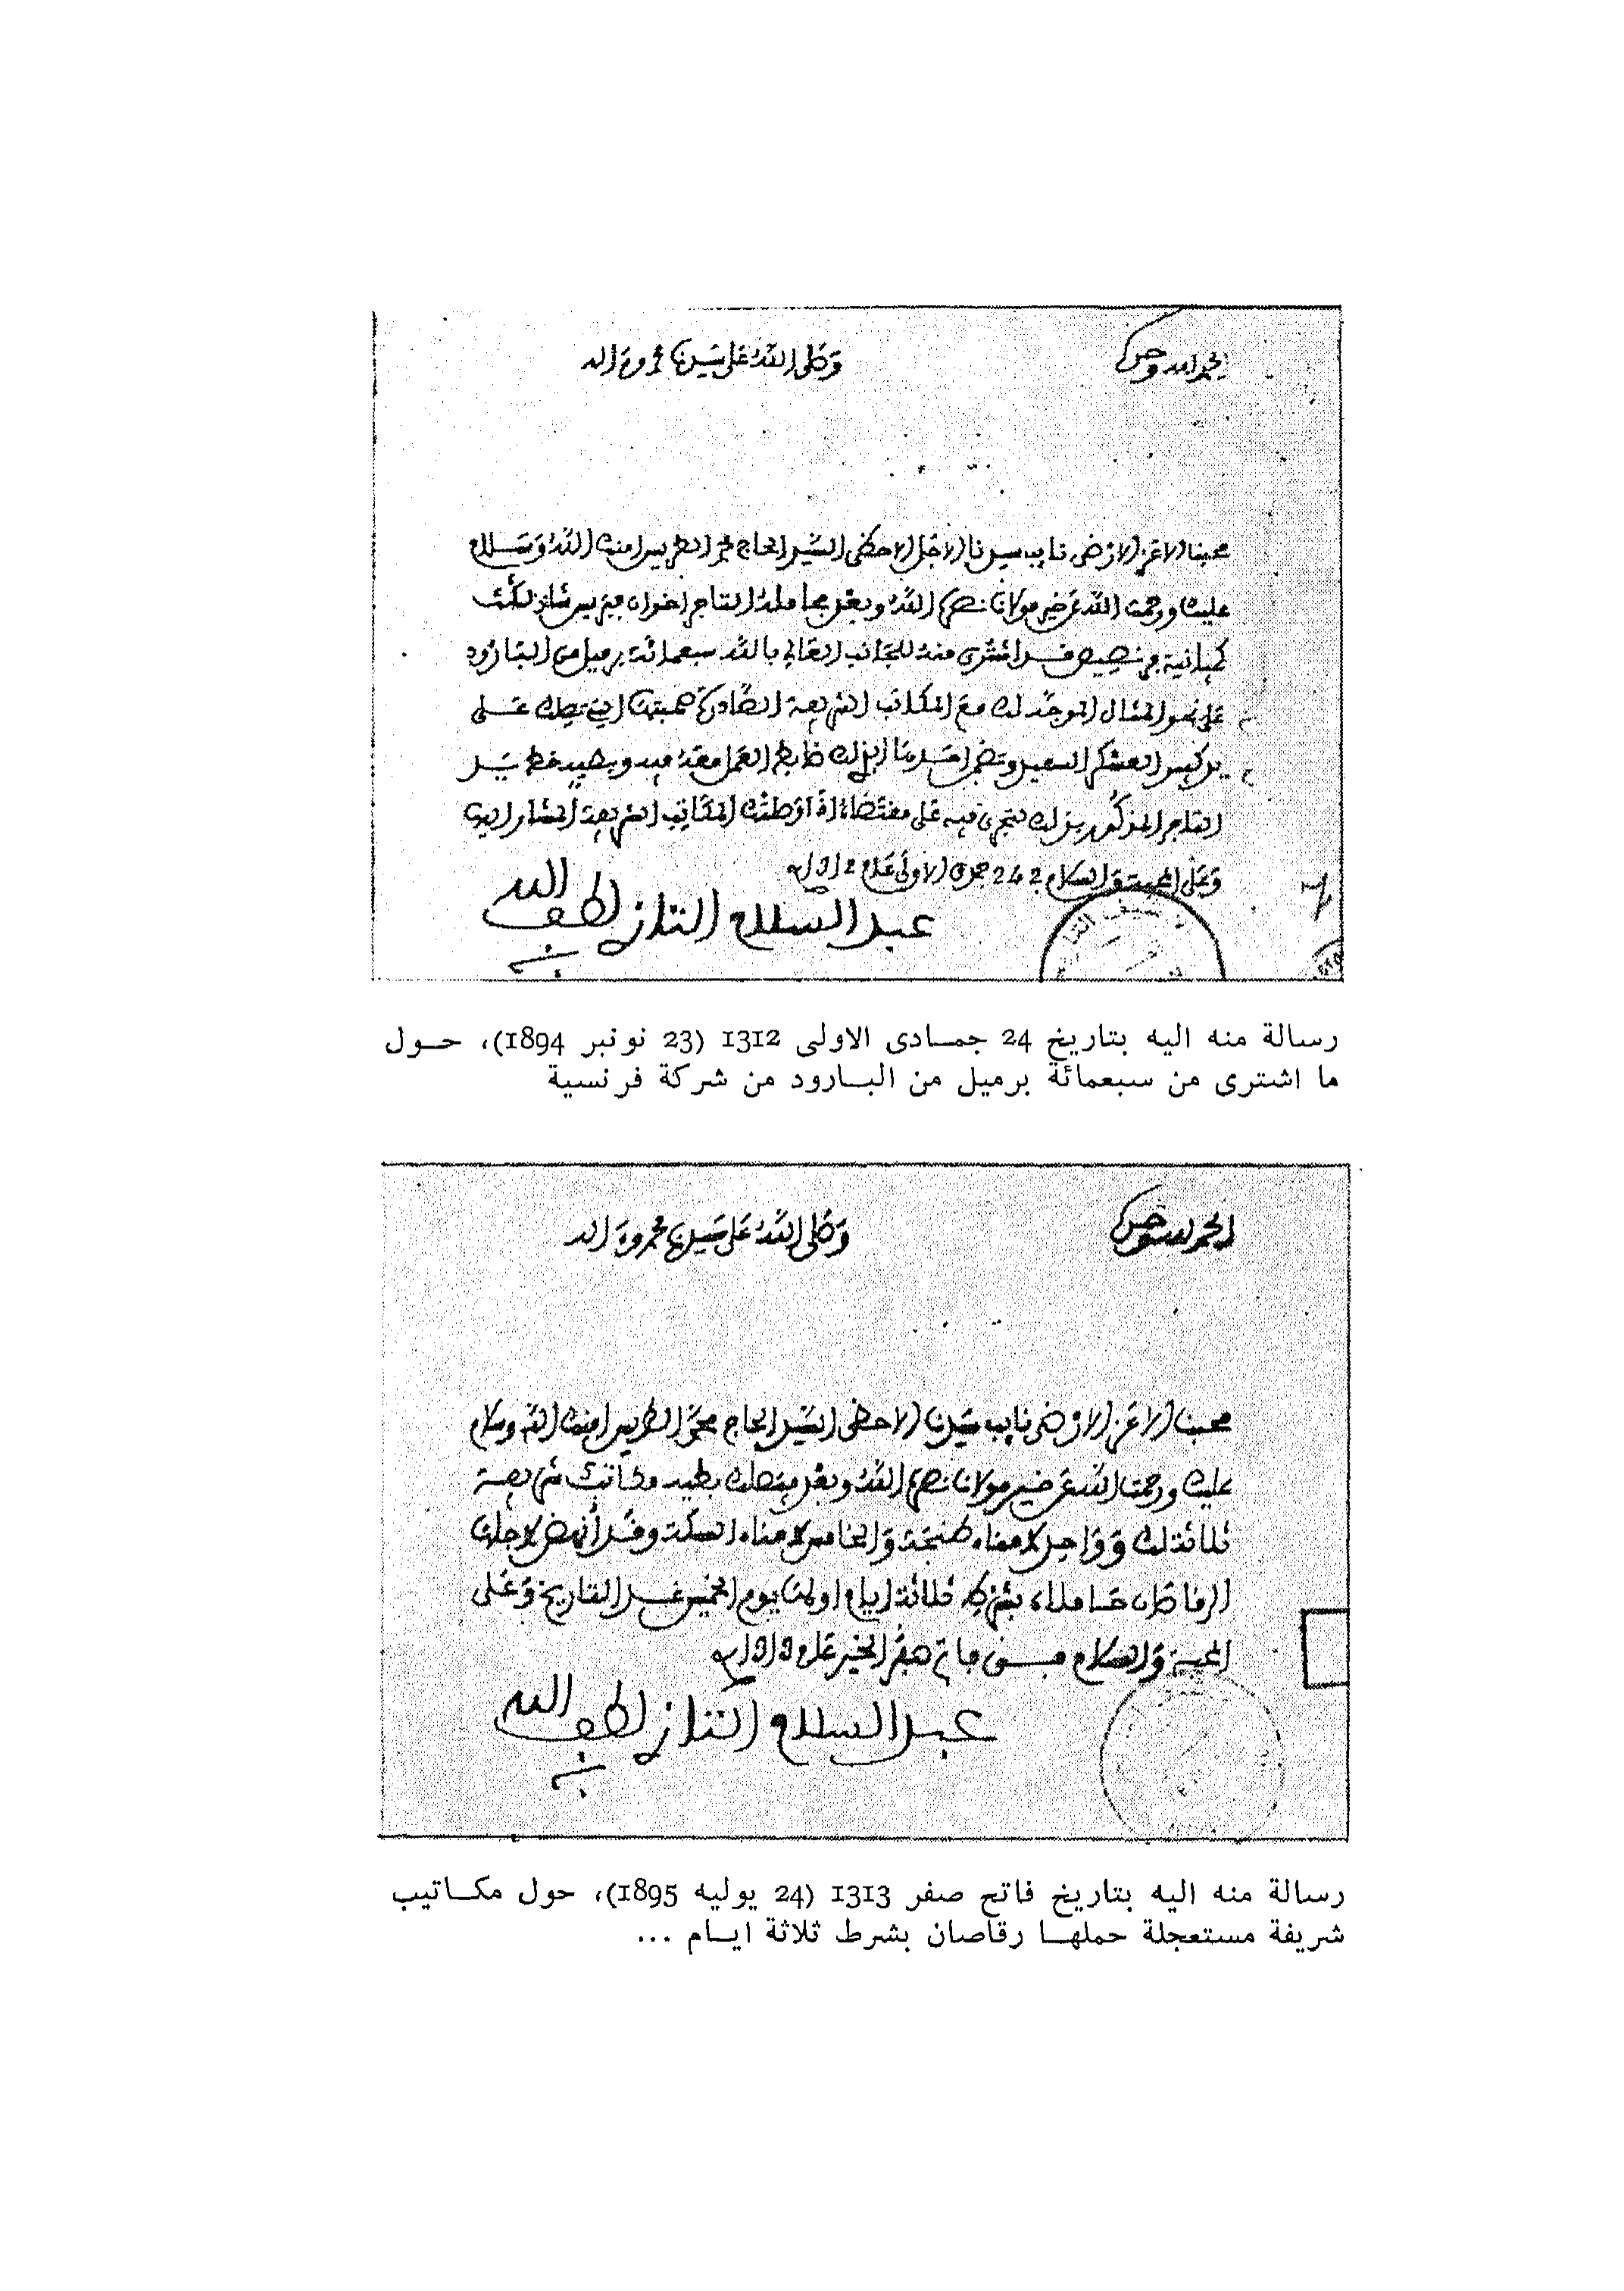 الحمد لله وحده
وصلى الله على سيدنا محمد وءاله
محبنا الاعز الارضى نايب سيدنا الاجل الاحظى السيد الحاج محمد الطريس امنك الله وسلام
عليك ورحمت الله عن خير مولانا نصره الله وبعد التاجر اخوان
قد اشترى منه للجانب العالي بالله سبعمائة برميل من البارود
على نحو المثال الموجه لك مع المكاتب الشريفة الصادرة صحبته التي تصلك على
يد السعيد العمل
التاجر المذكور بذلك لتجري فيه على مقتضاه اذا المكاتب الشريفة المشار اليها
وعلى المحبة والسلام 24 جمدى الاولى عام 1312
عبد السلام التازي لطف الله به
رسالة منه اليه بتاريخ 24 جمــادى الاولى 1312 (23 نونبر 1894)، حــول
ما اشترى من سبعمائة برميل من البــارود من شركة فرنسية
الحمد لله وحده
وصلى الله على سيدنا محمد وءاله
محبنا الاعز الارضى نايب سيدنا الاحظى السيد الحاج محمد الطريس امنك الله وسلام
عليك ورحمت الله عن خير مولانا نصره الله وبعد فيصلك بطيه مكاتب شريفة
ثلاثة لك وواحد لامناء طنجة والخامس لامناء السكة وقد أنهض لاجلها
الرقاصان حاملاه بشرط ثلاثة ايام اولها يوم الخميس غد التاريخ وعلى
المحبة والسلام في فاتح صفر الخير عام 1313
عبد السلام التازي لطف الله به
رسالة منه اليه بتاريخ فاتح صفر 1313 (24 يوليه 1895)، حول مكــاتيب
شريفة مستعجلة حملهــا رقاصان بشرط ثلاثة ايــام ...